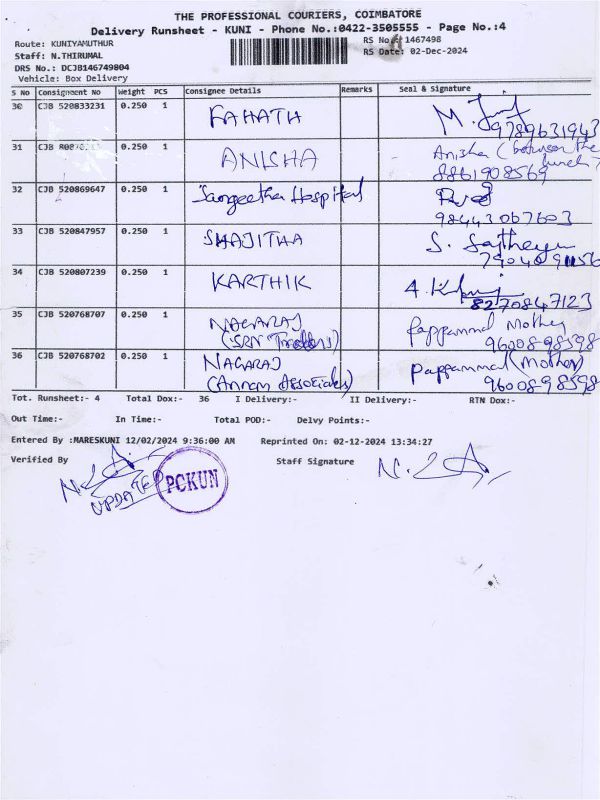 THE PROFESSIONAL COURIERS, COIMBATORE
Delivery Runsheet - KUNI - Phone No.:0422-3505555 - Page No.:4
Route: KUNIYAMUTHUR RS No.: 1467498
Staff: N.THIRUMAL RS Date: 02-Dec-2024
DRS No.: DCJB146749804
Vehicle: Box Delivery
S No Consignment No Weight PCS Consignee Details Remarks Seal & Signature
30 CJB 520833231 0.250 1 FAHATH M.
9789631943
31 CJB 0.250 1 ANISHA Anisha (between the
8861908569
32 CJB 520869647 0.250 1 Sangeetha Hospital
9844306 7603
33 CJB 520847957 0.250 1 SHAJITHA S.
34 CJB 520807239 0.250 1 KARTHIK A.
8270847123
35 CJB 520768707 0.250 1 NAGARAJ Pappammal Mother
(SRN Traders) 9600898598
36 CJB 520768702 0.250 1 NAGARAJ Pappammal (Mother)
(Annam Associates) 9600898598
Tot. Runsheet:- 4 Total Dox:- 36 I Delivery:- II Delivery:- RTN Dox:-
Out Time:- In Time:- Total POD:- Delvy Points:-
Entered By :MARESKUNI 12/02/2024 9:36:00 AM Reprinted On: 02-12-2024 13:34:27
Verified By Staff Signature
UPDATED PCKUN